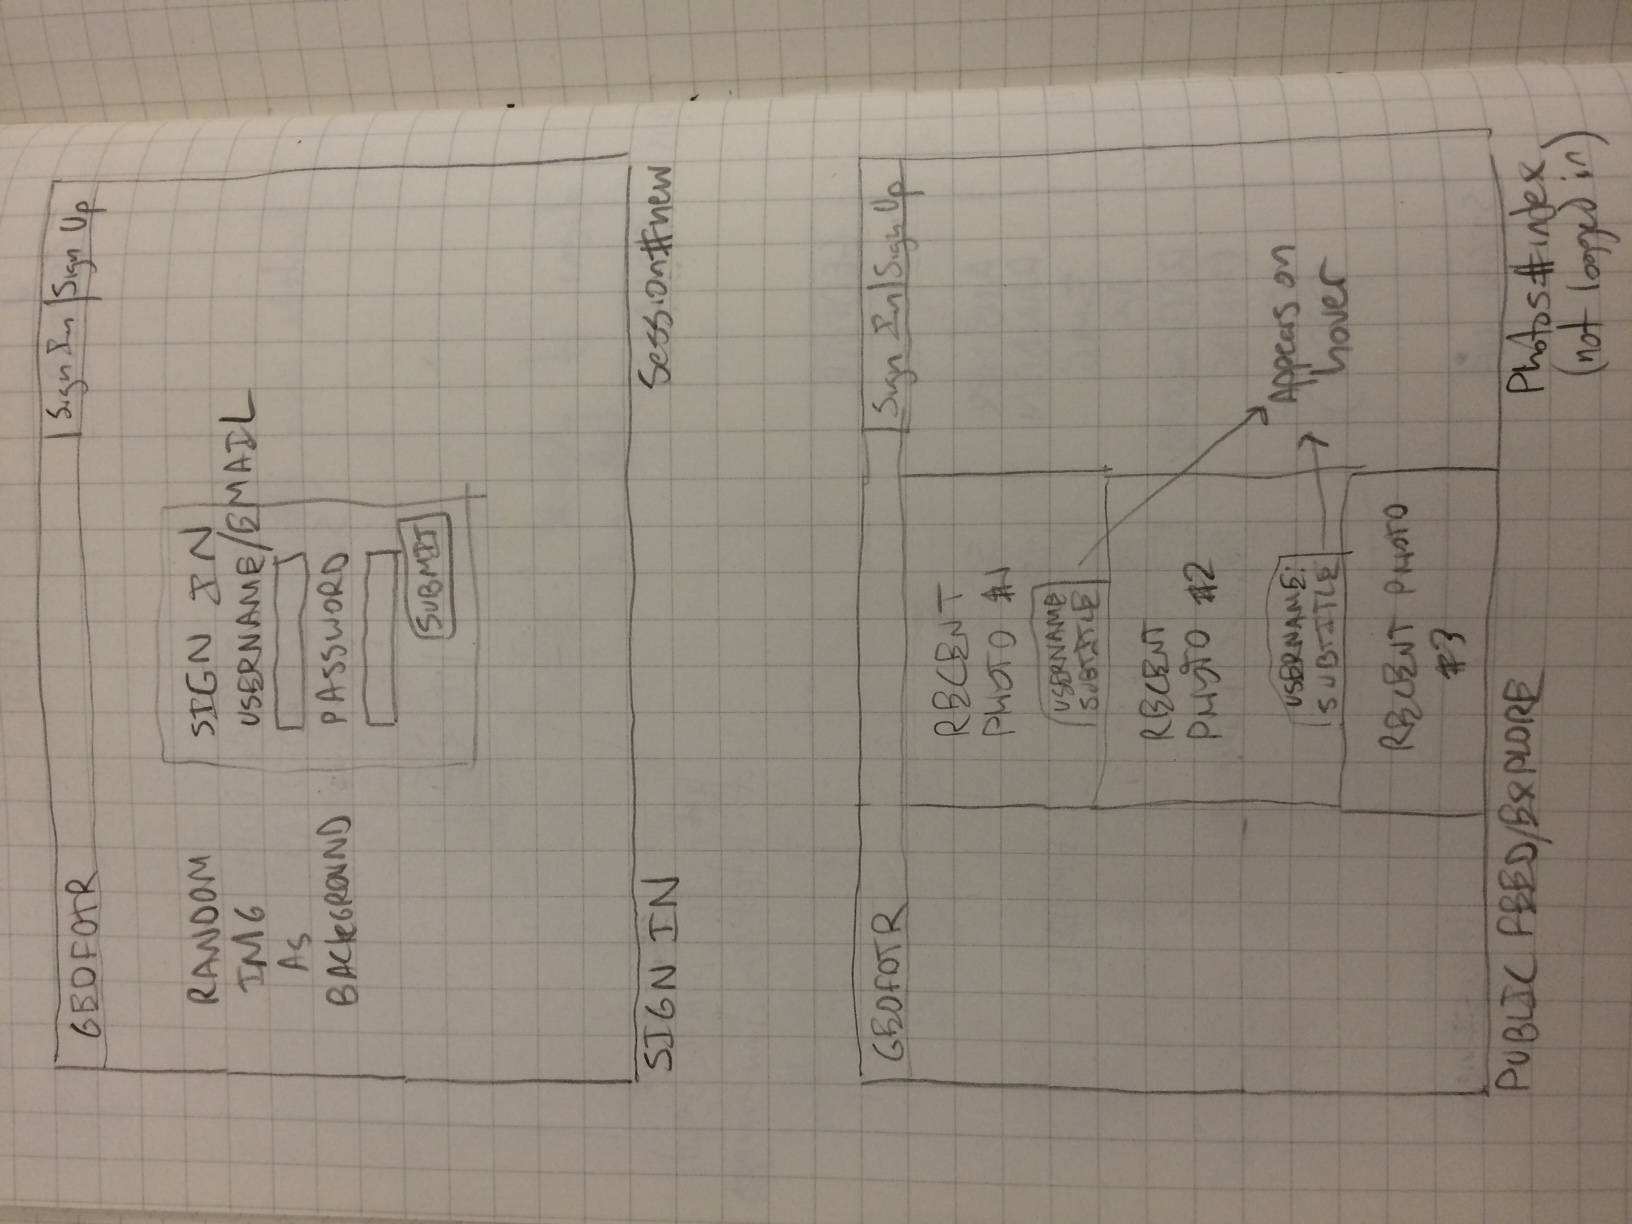 GEOFOTR
Sign In
Sign Up
RANDOM
IMG
As
BACKGROUND
SIGN IN
USERNAME/EMAIL
PASSWORD
SUBMIT
SIGN IN
Session#new
GEOFOTR
Sign In
Sign Up
RECENT
PHOTO #1
USERNAME
SUBTITLE
RECENT
PHOTO #2
USERNAME:
SUBTITLE
Appears on
hover
RECENT PHOTO
#3
PUBLIC FEED/EXPLORE
Photos#index
(not logged in)